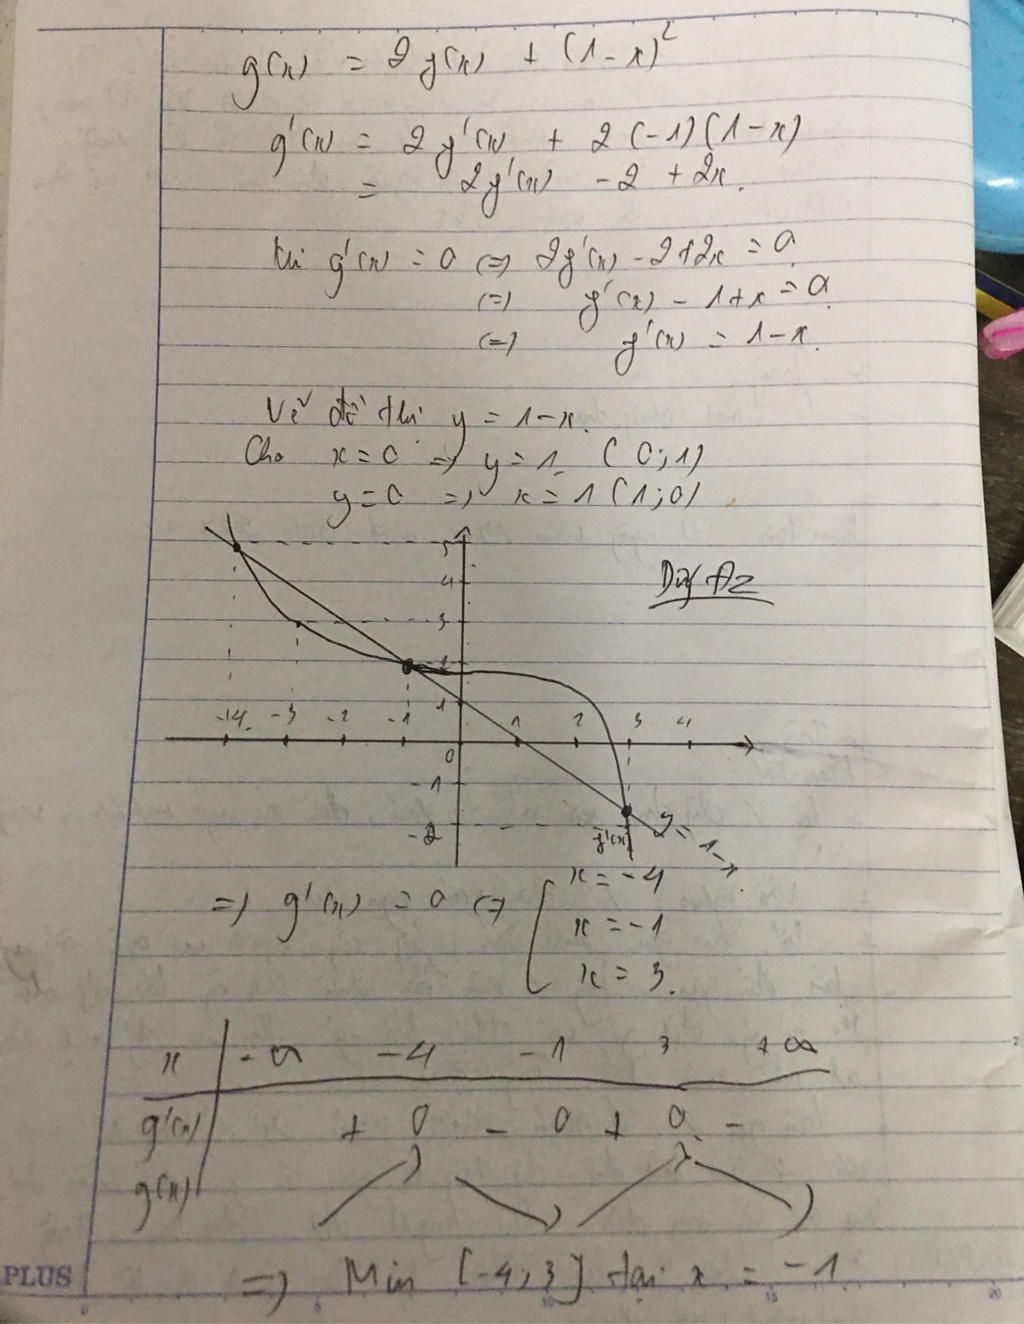 g(x) = 2f(x) + (1-x)²
g'(x) = 2f'(x) + 2(-1)(1-x)
= 2f'(x) - 2 + 2x.
Khi g'(x) = 0 (=) 2f'(x) - 2 + 2x = 0
(=) f'(x) - 1 + x = 0.
(=) f'(x) = 1-x.
Vẽ đồ thị y = 1-x.
Cho x = 0 => y = 1 (0;1)
y = 0 => x = 1 (1;0)
5
4
3
2
1
-4 -3 -2 -1 1 2 3 4
0
-1
-2
f'(x)
y = 1-x
=> g'(x) = 0 (=) [ x = -4
x = -1
x = 3.
x -∞ -4 -1 3 +∞
g'(x) + 0 - 0 + 0 -
g(x)
=> Min [-4;3] tại x = -1
PLUS